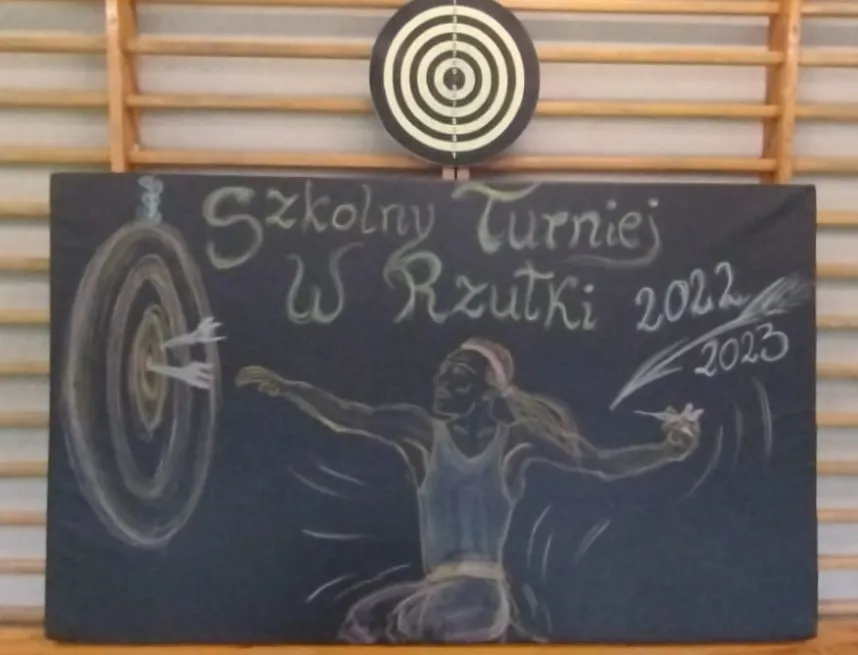 Szkolny Turniej
W Rzutki
2022
2023